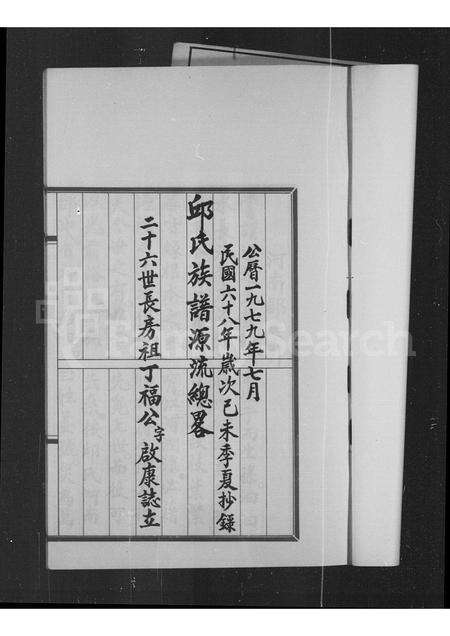 公曆一九七九年七月
民國六十八年歲次己未季夏抄錄
邱氏族譜源流總畧
二十六世長房祖丁福公字啟康誌立